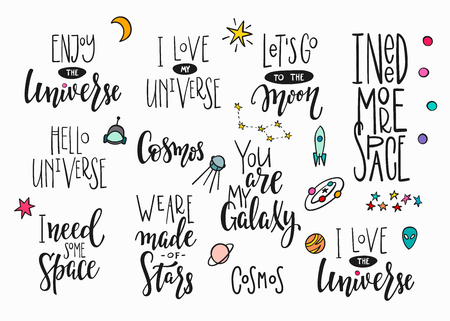 ENJOY
THE
Universe
I LOVE
MY
UNIVERSE
LET'S GO
TO THE
Moon
I NEED
MOORE
SPACE
HELLO
UNIVERSE
Cosmos
YOU
are
MY
Galaxy
I need
SOME
Space
WE ARE
made
-OF-
Stars
COSMOS
I LOVE
THE
Universe